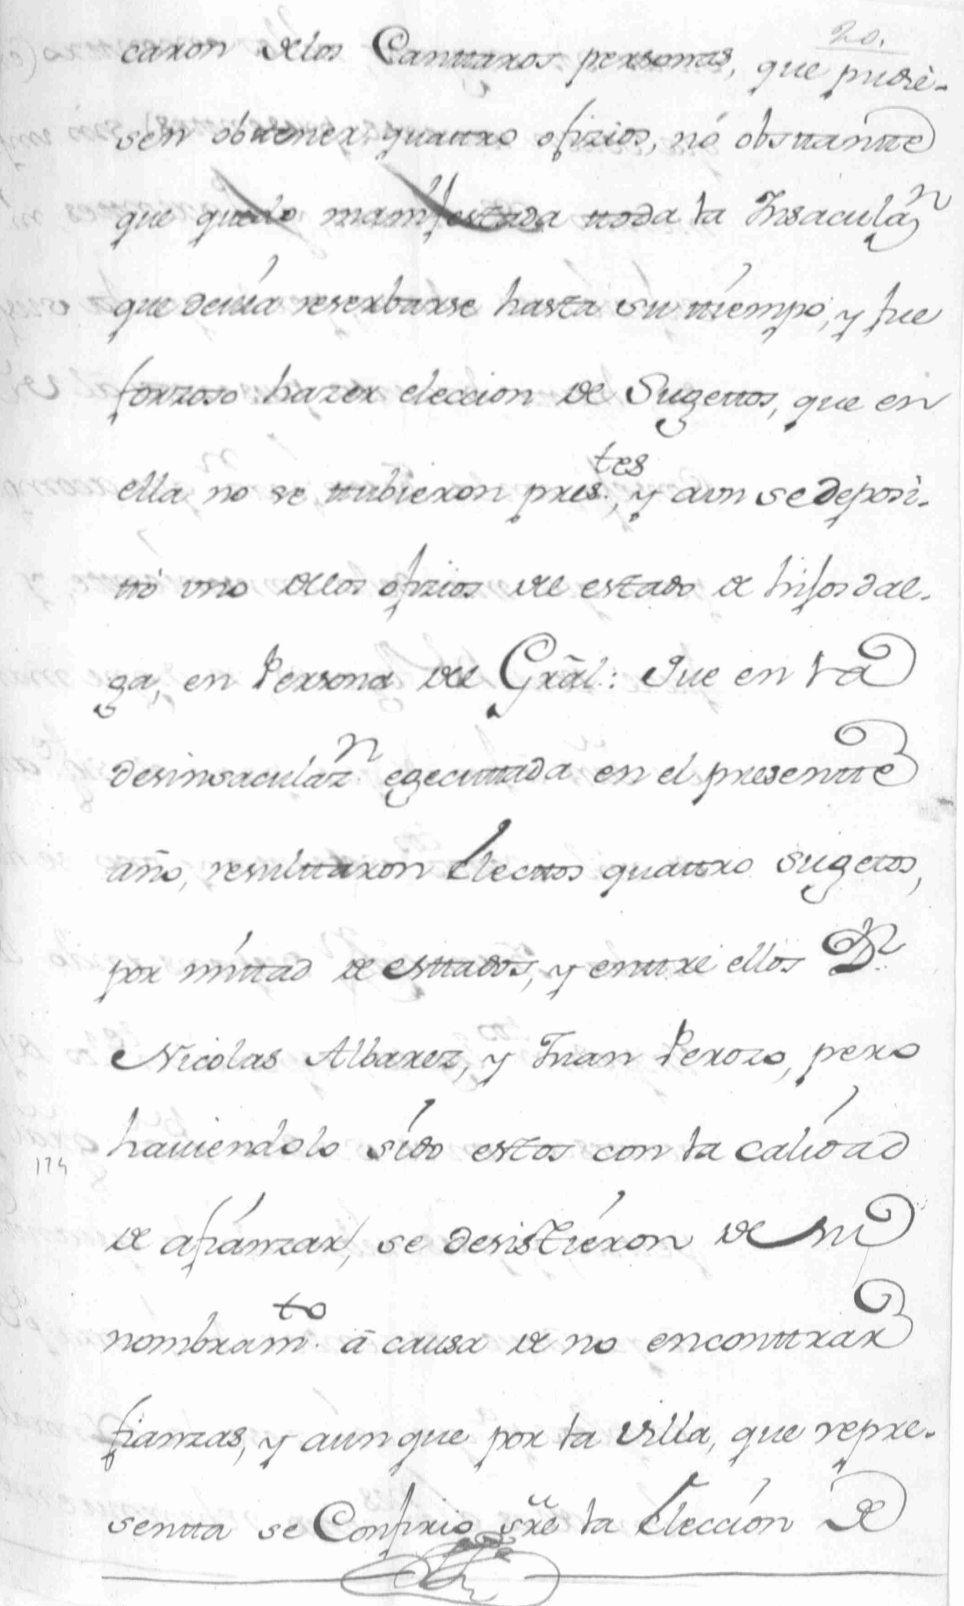 20.
caron delos Canttaros personas, que pudie-
sen obttener quattro ofizios, nó obsttantte
que quedo manifestada ttoda la Insaculaz.n
que devia reserbarse hasta su ttiempo, y fue
forzoso hazer eleccion de Sugettos, que en
ella no se ttubieron pres.tes, y aun se deposi-
ttó uno delos ofizios del estado de hijosdal-
ga, en Persona del Grãl.: Que en la
desinsaculaz.n egecuttada en el presentte
año, resulttaron Electtos quattro sugetos,
por mittad de esttados, y enttre ellos D.n
Nicolas Albarez, y Juan Perozo, pero
haviendolo sido estos con la calidad
174
de afianzar, se desistieron de su
nombram.to á causa de no enconttrar
fianzas, y aunque por la Villa, que repre-
sentta se Confirio sre la Elección de